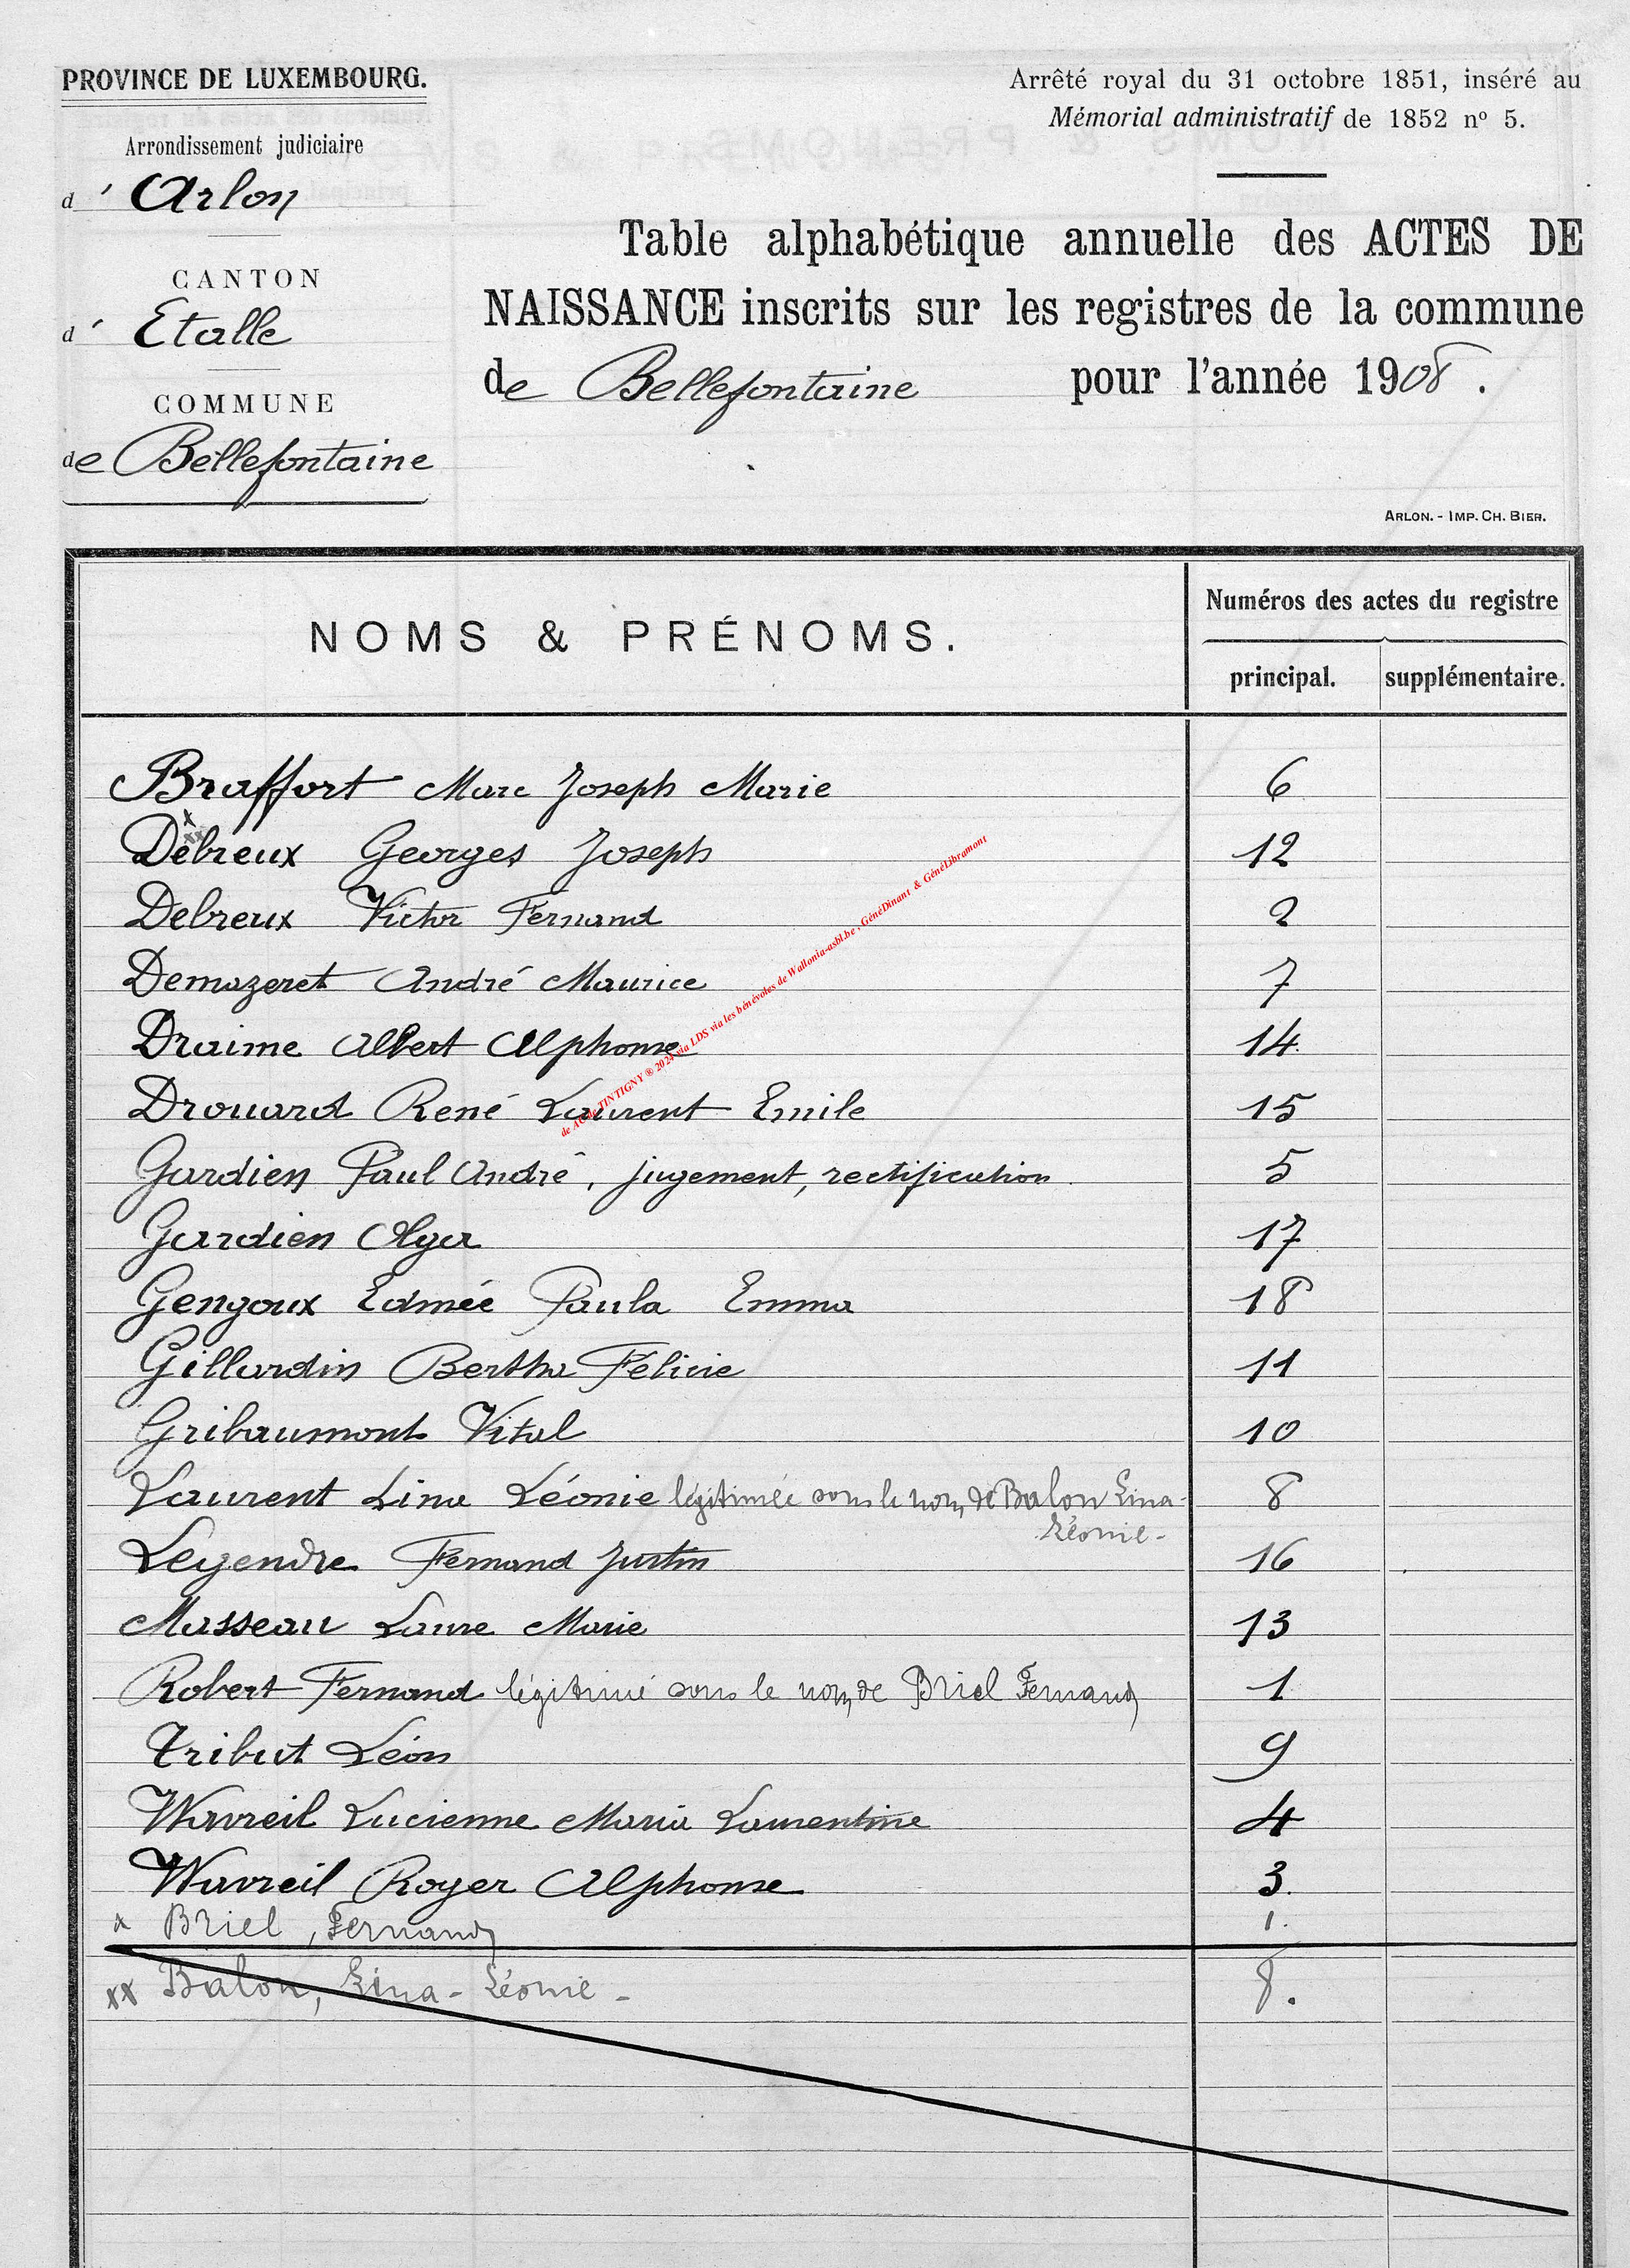 PROVINCE DE LUXEMBOURG.
Arrondissement judiciaire
d' Arlon
CANTON
d' Etalle
COMMUNE
de Bellefontaine
Arrêté royal du 31 octobre 1851, inséré au
Mémorial administratif de 1852 nº 5.
Table alphabétique annuelle des ACTES DE
NAISSANCE inscrits sur les registres de la commune
de Bellefontaine pour l'année 1908.
ARLON. - IMP. CH. BIER.
NOMS & PRÉNOMS.
Numéros des actes du registre
principal. supplémentaire.
Braffort Marc Joseph Marie 6
x
xx
Debreux Georges Joseph 12
Debreux Victor Fernand 2
Demazeret André Maurice 7
Draime Albert Alphonse 14.
Drouard René Laurent Emile 15
Gardien Paul André, jugement, rectification. 5
Gardien Olga 17
Gengoux Edmée Paula Emma 18
Gillardin Bertha Félicie 11
Gribaumont Vital 10
Laurent Lina Léonie légitimée sous le nom de Balon Lina- 8
Léonie-
Legendre Fernand Justin 16
Masseau Laure Marie 13
Robert Fernand légitimé sous le nom de Briel Fernand 1
Tribut Léon 9
Wavreil Lucienne Maria Laurentine 4
Wavreil Roger Alphonse 3.
x Briel, Fernand 1.
xx Balon, Lina-Léonie- 8.
de AC de TINTIGNY ® 2024 via LDS via les bénévoles de Wallonia-asbl.be, GénéDinant & GénéLibramont